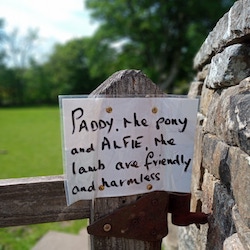 PADDY, the pony
and ALFIE, the
lamb are friendly
and harmless